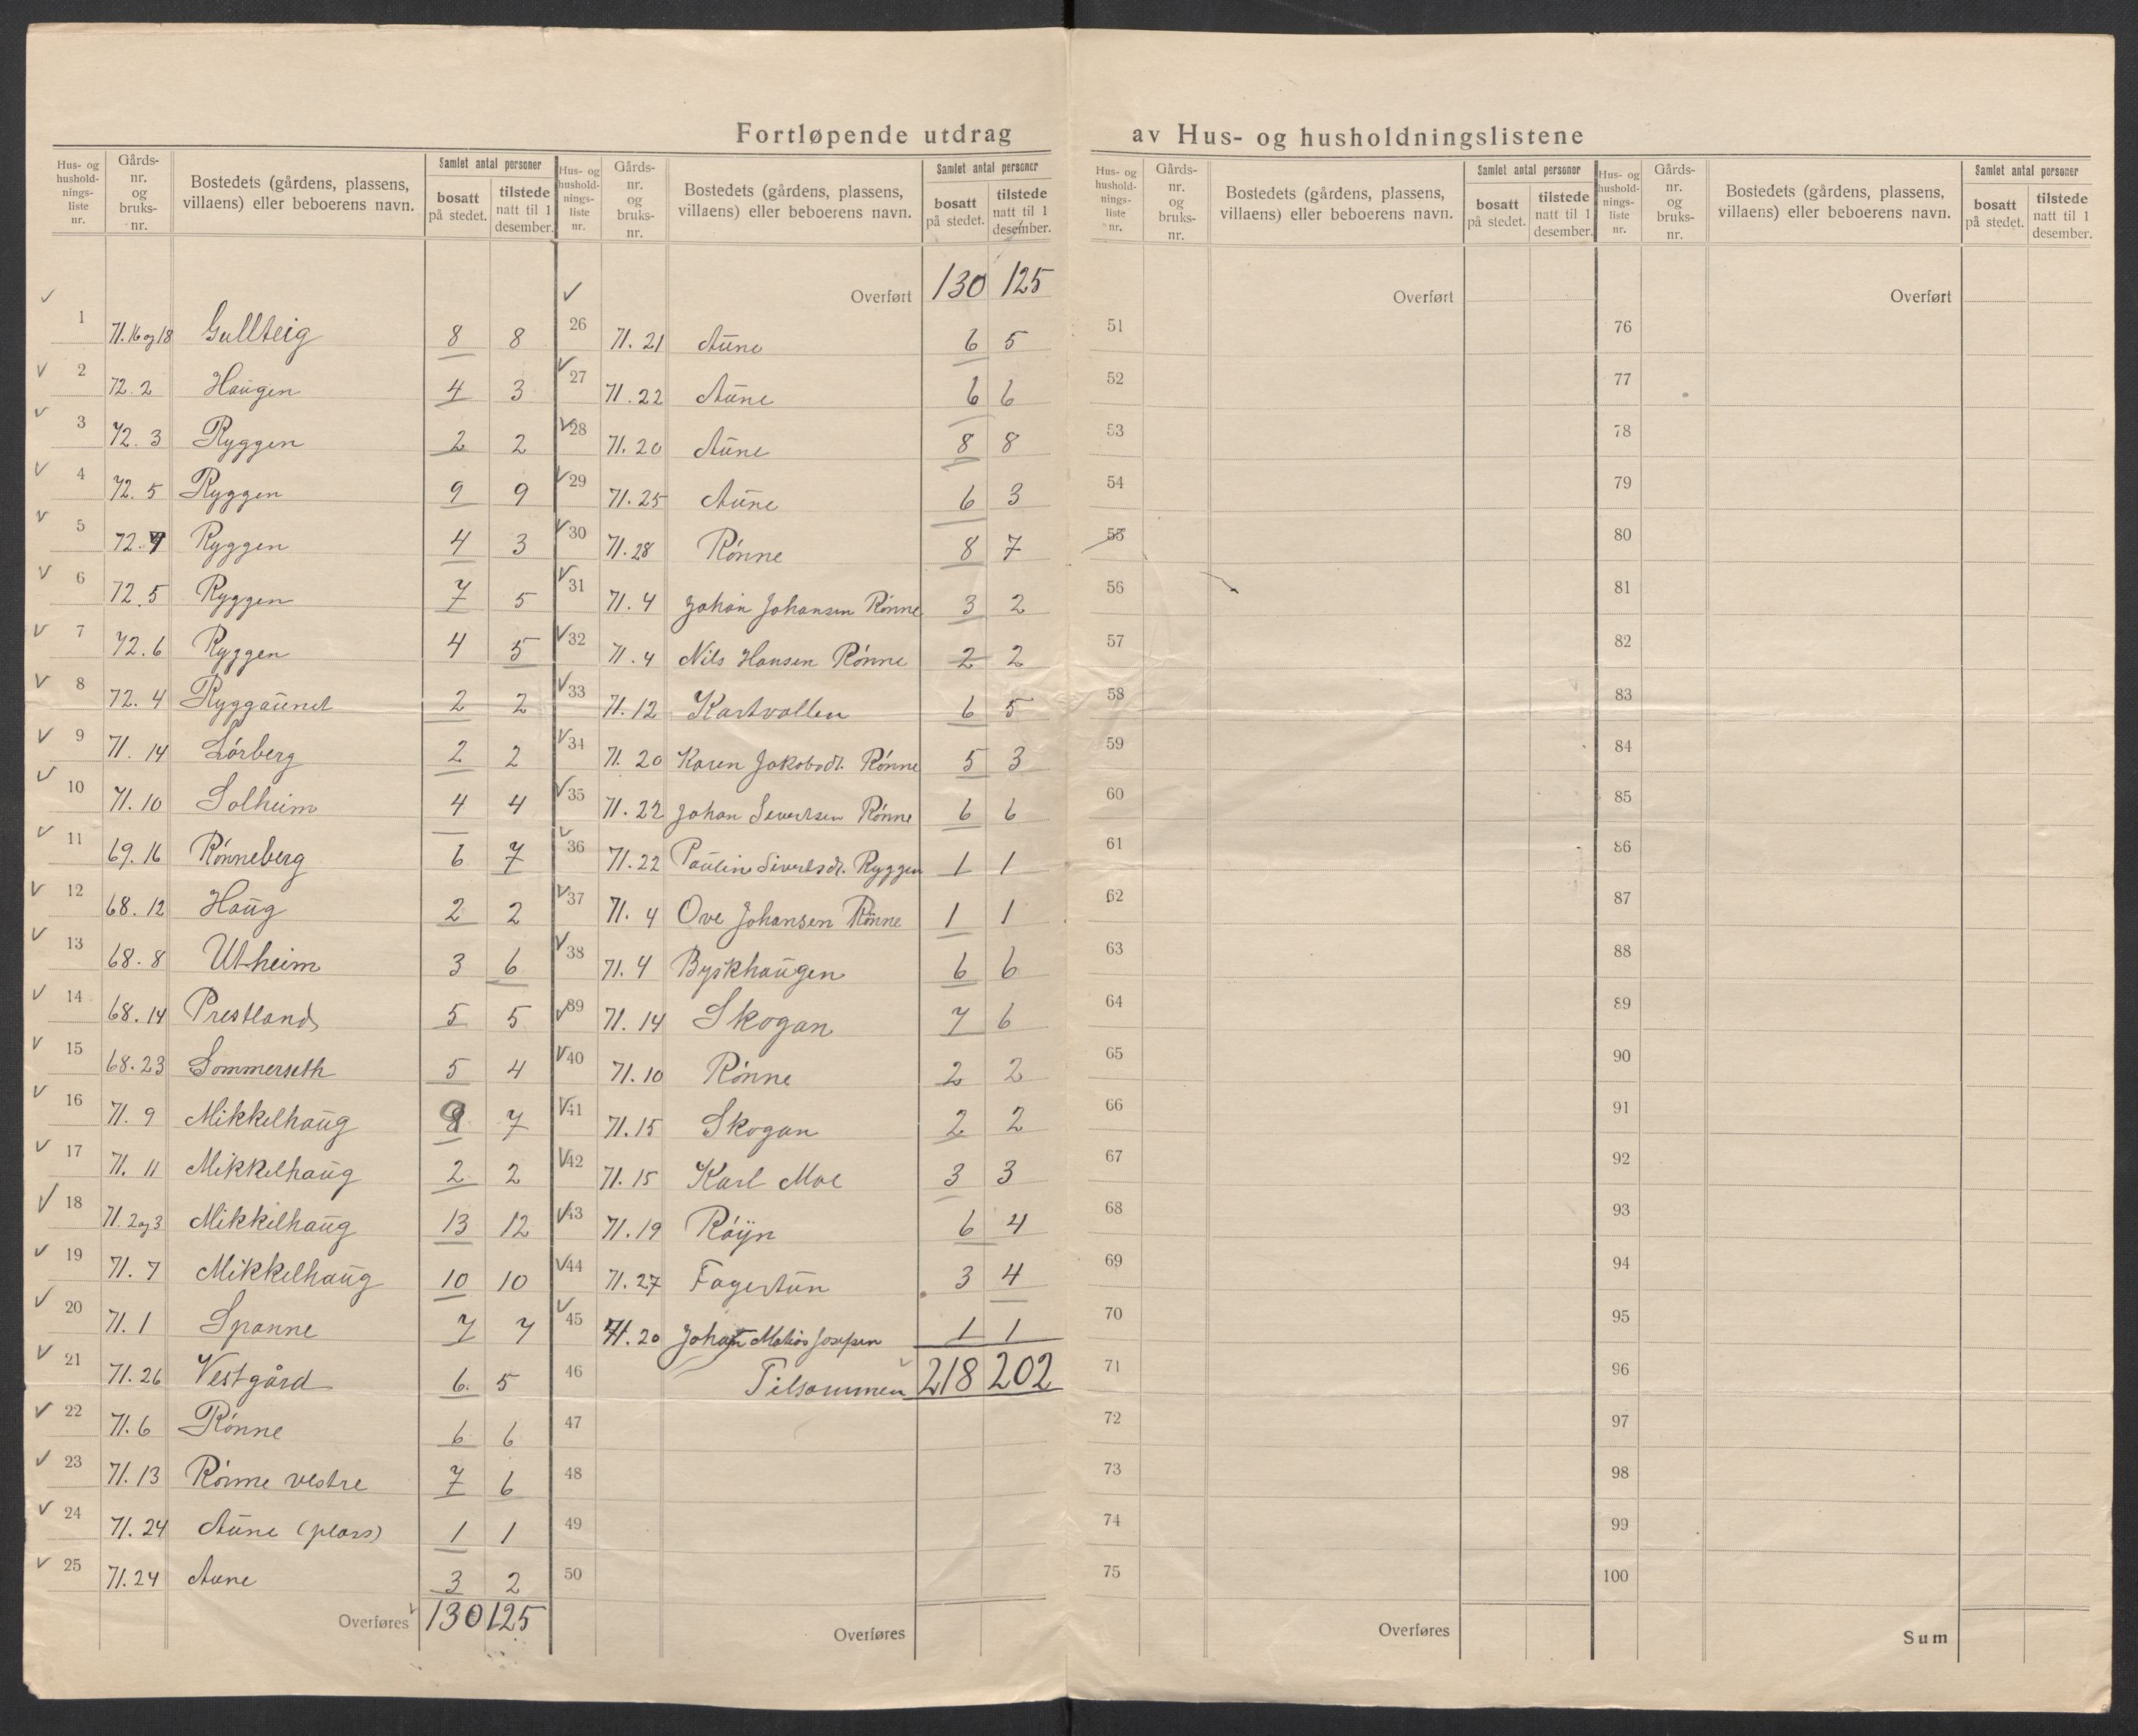 Fortløpende utdrag av Hus- og husholdningslistene
Hus- og hushold-nings-liste nr. Gårds-nr. og bruks-nr. Bostedets (gårdens, plassens, villaens) eller beboerens navn. Samlet antal personer bosatt på stedet. tilstede natt til 1 desember.
1 71.16 og 18 Gullteig 8 8
2 72.2 Haugen 4 3
3 72.3 Ryggen 2 2
4 72.5 Ryggen 9 9
5 72.7 Ryggen 4 3
6 72.5 Ryggen 7 5
7 72.6 Ryggen 4 5
8 72.4 Ryggaunet 2 2
9 71.14 Lørberg 2 2
10 71.10 Solheim 4 4
11 69.16 Rønneberg 6 7
12 68.12 Haug 2 2
13 68.8 Utheim 3 6
14 68.14 Prestland 5 5
15 68.23 Sommerseth 5 4
16 71.9 Mikkelhaug 8 7
17 71.11 Mikkelhaug 2 2
18 71.2 og 3 Mikkelhaug 13 12
19 71.7 Mikkelhaug 10 10
20 71.1 Spanne 7 7
21 71.26 Vestgård 6 5
22 71.6 Rønne 6 6
23 71.13 Rønne vestre 7 6
24 71.24 Aune (plass) 1 1
25 71.24 Aune 3 2
Overføres 130 125
Hus- og hushold-nings-liste nr. Gårds-nr. og bruks-nr. Bostedets (gårdens, plassens, villaens) eller beboerens navn. Samlet antal personer bosatt på stedet. tilstede natt til 1 desember.
Overført 130 125
26 71.21 Aune 6 5
27 71.22 Aune 6 6
28 71.20 Aune 8 8
29 71.25 Aune 6 3
30 71.28 Rønne 8 7
31 71.4 Johan Johansen Rønne 3 2
32 71.4 Nils Hansen Rønne 2 2
33 71.12 Kastvollen 6 5
34 71.20 Karen Jakobsdt. Rønne 5 3
35 71.22 Johan Severtsen Rønne 6 6
36 71.22 Paulin Sivertsdt. Ryggen 1 1
37 71.4 Ove Johansen Rønne 1 1
38 71.4 Byskhaugen 6 6
39 71.14 Skogan 7 6
40 71.10 Rønne 2 2
41 71.15 Skogan 2 2
42 71.15 Karl Moe 3 3
43 71.19 Røyn 6 4
44 71.27 Fagertun 3 4
45 71.20 Johan Matias Josefsen 1 1
46 Tilsammen 218 202
47
48
49
50
Overføres
Hus- og hushold-nings-liste nr. Gårds-nr. og bruks-nr. Bostedets (gårdens, plassens, villaens) eller beboerens navn. Samlet antal personer bosatt på stedet. tilstede natt til 1 desember.
Overført
51
52
53
54
55
56
57
58
59
60
61
62
63
64
65
66
67
68
69
70
71
72
73
74
75
Overføres
Hus- og hushold-nings-liste nr. Gårds-nr. og bruks-nr. Bostedets (gårdens, plassens, villaens) eller beboerens navn. Samlet antal personer bosatt på stedet. tilstede natt til 1 desember.
Overført
76
77
78
79
80
81
82
83
84
85
86
87
88
89
90
91
92
93
94
95
96
97
98
99
100
Sum